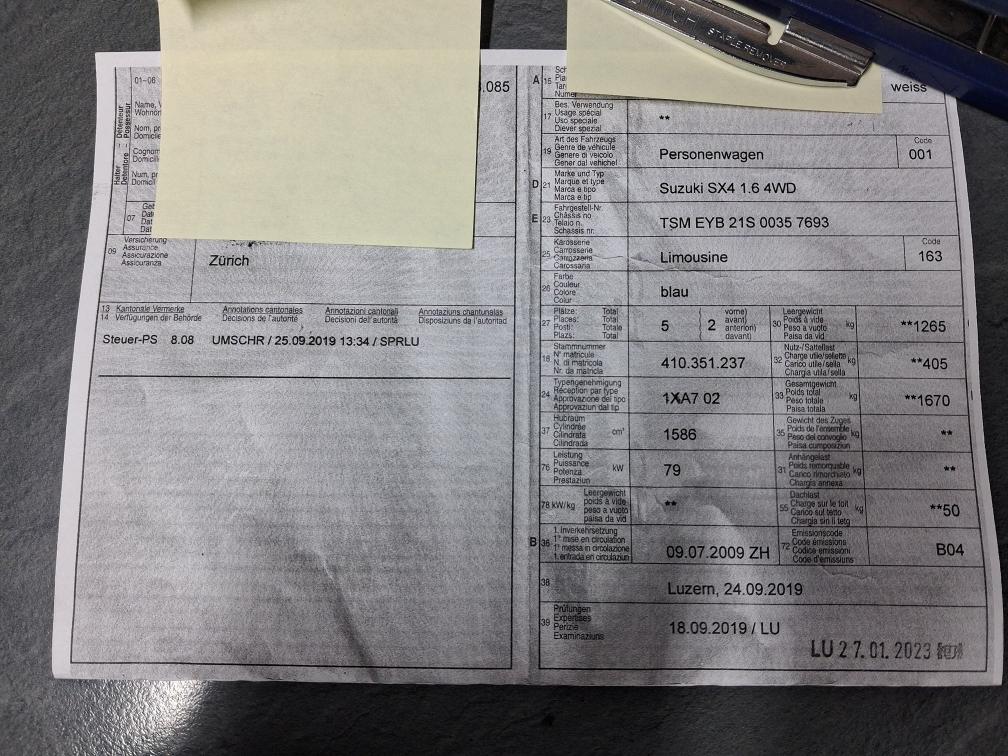 SWITCH
STAPLE REMOVER
01-06
.085
Halter
Détenteur
Detentore
Possessur
Name,
Wohnort
Nom, pr
Domicile
Cognom
Domicil
Num, pr
Domicil
07
Dat
Dat
Dat
09
Versicherung
Assurance
Assicurazione
Assicuranza
Zürich
13 Kantonale Vermerke
14 Verfügungen der Behörde
Annotations cantonales
Décisions de l'autorité
Annotazioni cantonali
Decisioni dell'autorità
Annotaziuns chantunalas
Disposiziuns da l'autoritad
Steuer-PS 8.08 UMSCHR / 25.09.2019 13:34 / SPRLU
A 15
weiss
17
Bes. Verwendung
Usage spécial
Uso speciale
Diever spezial
**
19
Art des Fahrzeugs
Genre de véhicule
Genere di veicolo
Gener dal vehichel
Personenwagen
Code
001
D 21
Marke und Typ
Marque et type
Marca e tipo
Marca e tip
Suzuki SX4 1.6 4WD
E 23
Fahrgestell-Nr.
Châssis no
Telaio n.
Schassis nr.
TSM EYB 21S 0035 7693
25
Karosserie
Carrosserie
Carrozzeria
Carossaria
Limousine
Code
163
26
Farbe
Couleur
Colore
Colur
blau
27
Plätze: Total
Places: Total
Posti: Totale
Plazs: Total
5
2
vorne)
avant)
anteriori)
davant)
30
Leergewicht
Poids à vide
Peso a vuoto
Paisa da vid
kg
**1265
18
Stammnummer
N° matricule
N. di matricola
Nr. da matricla
410.351.237
32
Nutz-/Sattellast
Charge utile/sellette
Carico utile/sella
Chargia utila/sella
kg
**405
24
Typengenehmigung
Réception par type
Approvazione del tipo
Approvaziun dal tip
1XA7 02
33
Gesamtgewicht
Poids total
Peso totale
Paisa totala
kg
**1670
37
Hubraum
Cylindrée
Cilindrata
Cilindrada
cm³
1586
35
Gewicht des Zuges
Poids de l'ensemble
Peso del convoglio
Paisa cumposiziun
kg
**
76
Leistung
Puissance
Potenza
Prestaziun
kW
79
31
Anhängelast
Poids remorquable
Carico rimorchiato
Chargia annexa
kg
**
78 kW/kg
Leergewicht
poids à vide
peso a vuoto
paisa da vid
**
55
Dachlast
Charge sur le toit
Carico sul tetto
Chargia sin il tetg
kg
**50
B 36
1. Inverkehrsetzung
1re mise en circulation
1a messa in circolazione
1. entrada en circulaziun
09.07.2009 ZH
72
Emissionscode
Code émissions
Codice emissioni
Code d'emissiuns
B04
38
Luzern, 24.09.2019
39
Prüfungen
Expertises
Perizie
Examinaziuns
18.09.2019 / LU
LU 27.01.2023